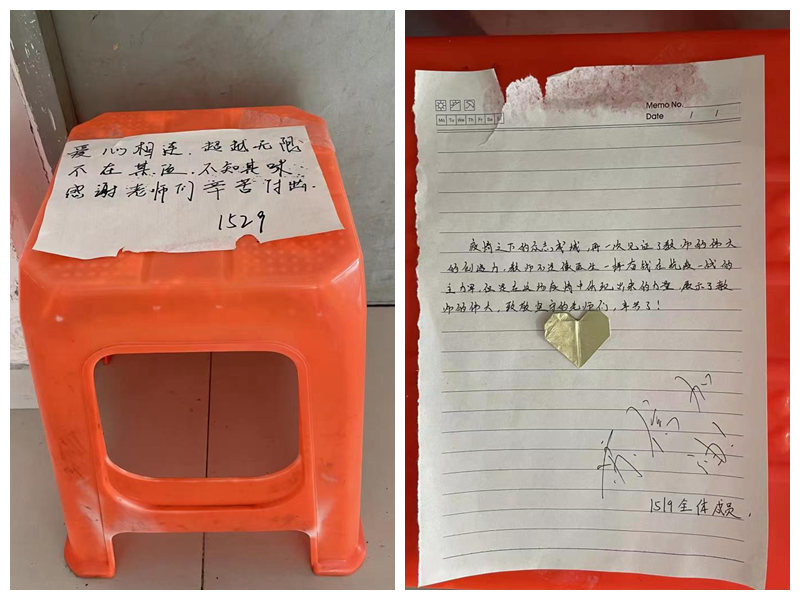 爱心相连.超越无限
不在其位.不知其味.
感谢老师们辛苦付出.
1529
Memo No.
Mo Tu We Th Fr Sa
Date / /
疫情之下的众志成城,再一次见证了教师的伟大
的创造力,教师不是像医生一样奋战在抗疫一战的
主力军,但是在这场疫情中展现出来的力量,展示了教
师的伟大,致敬坚守的老师们,辛苦了!
1519全体成员.